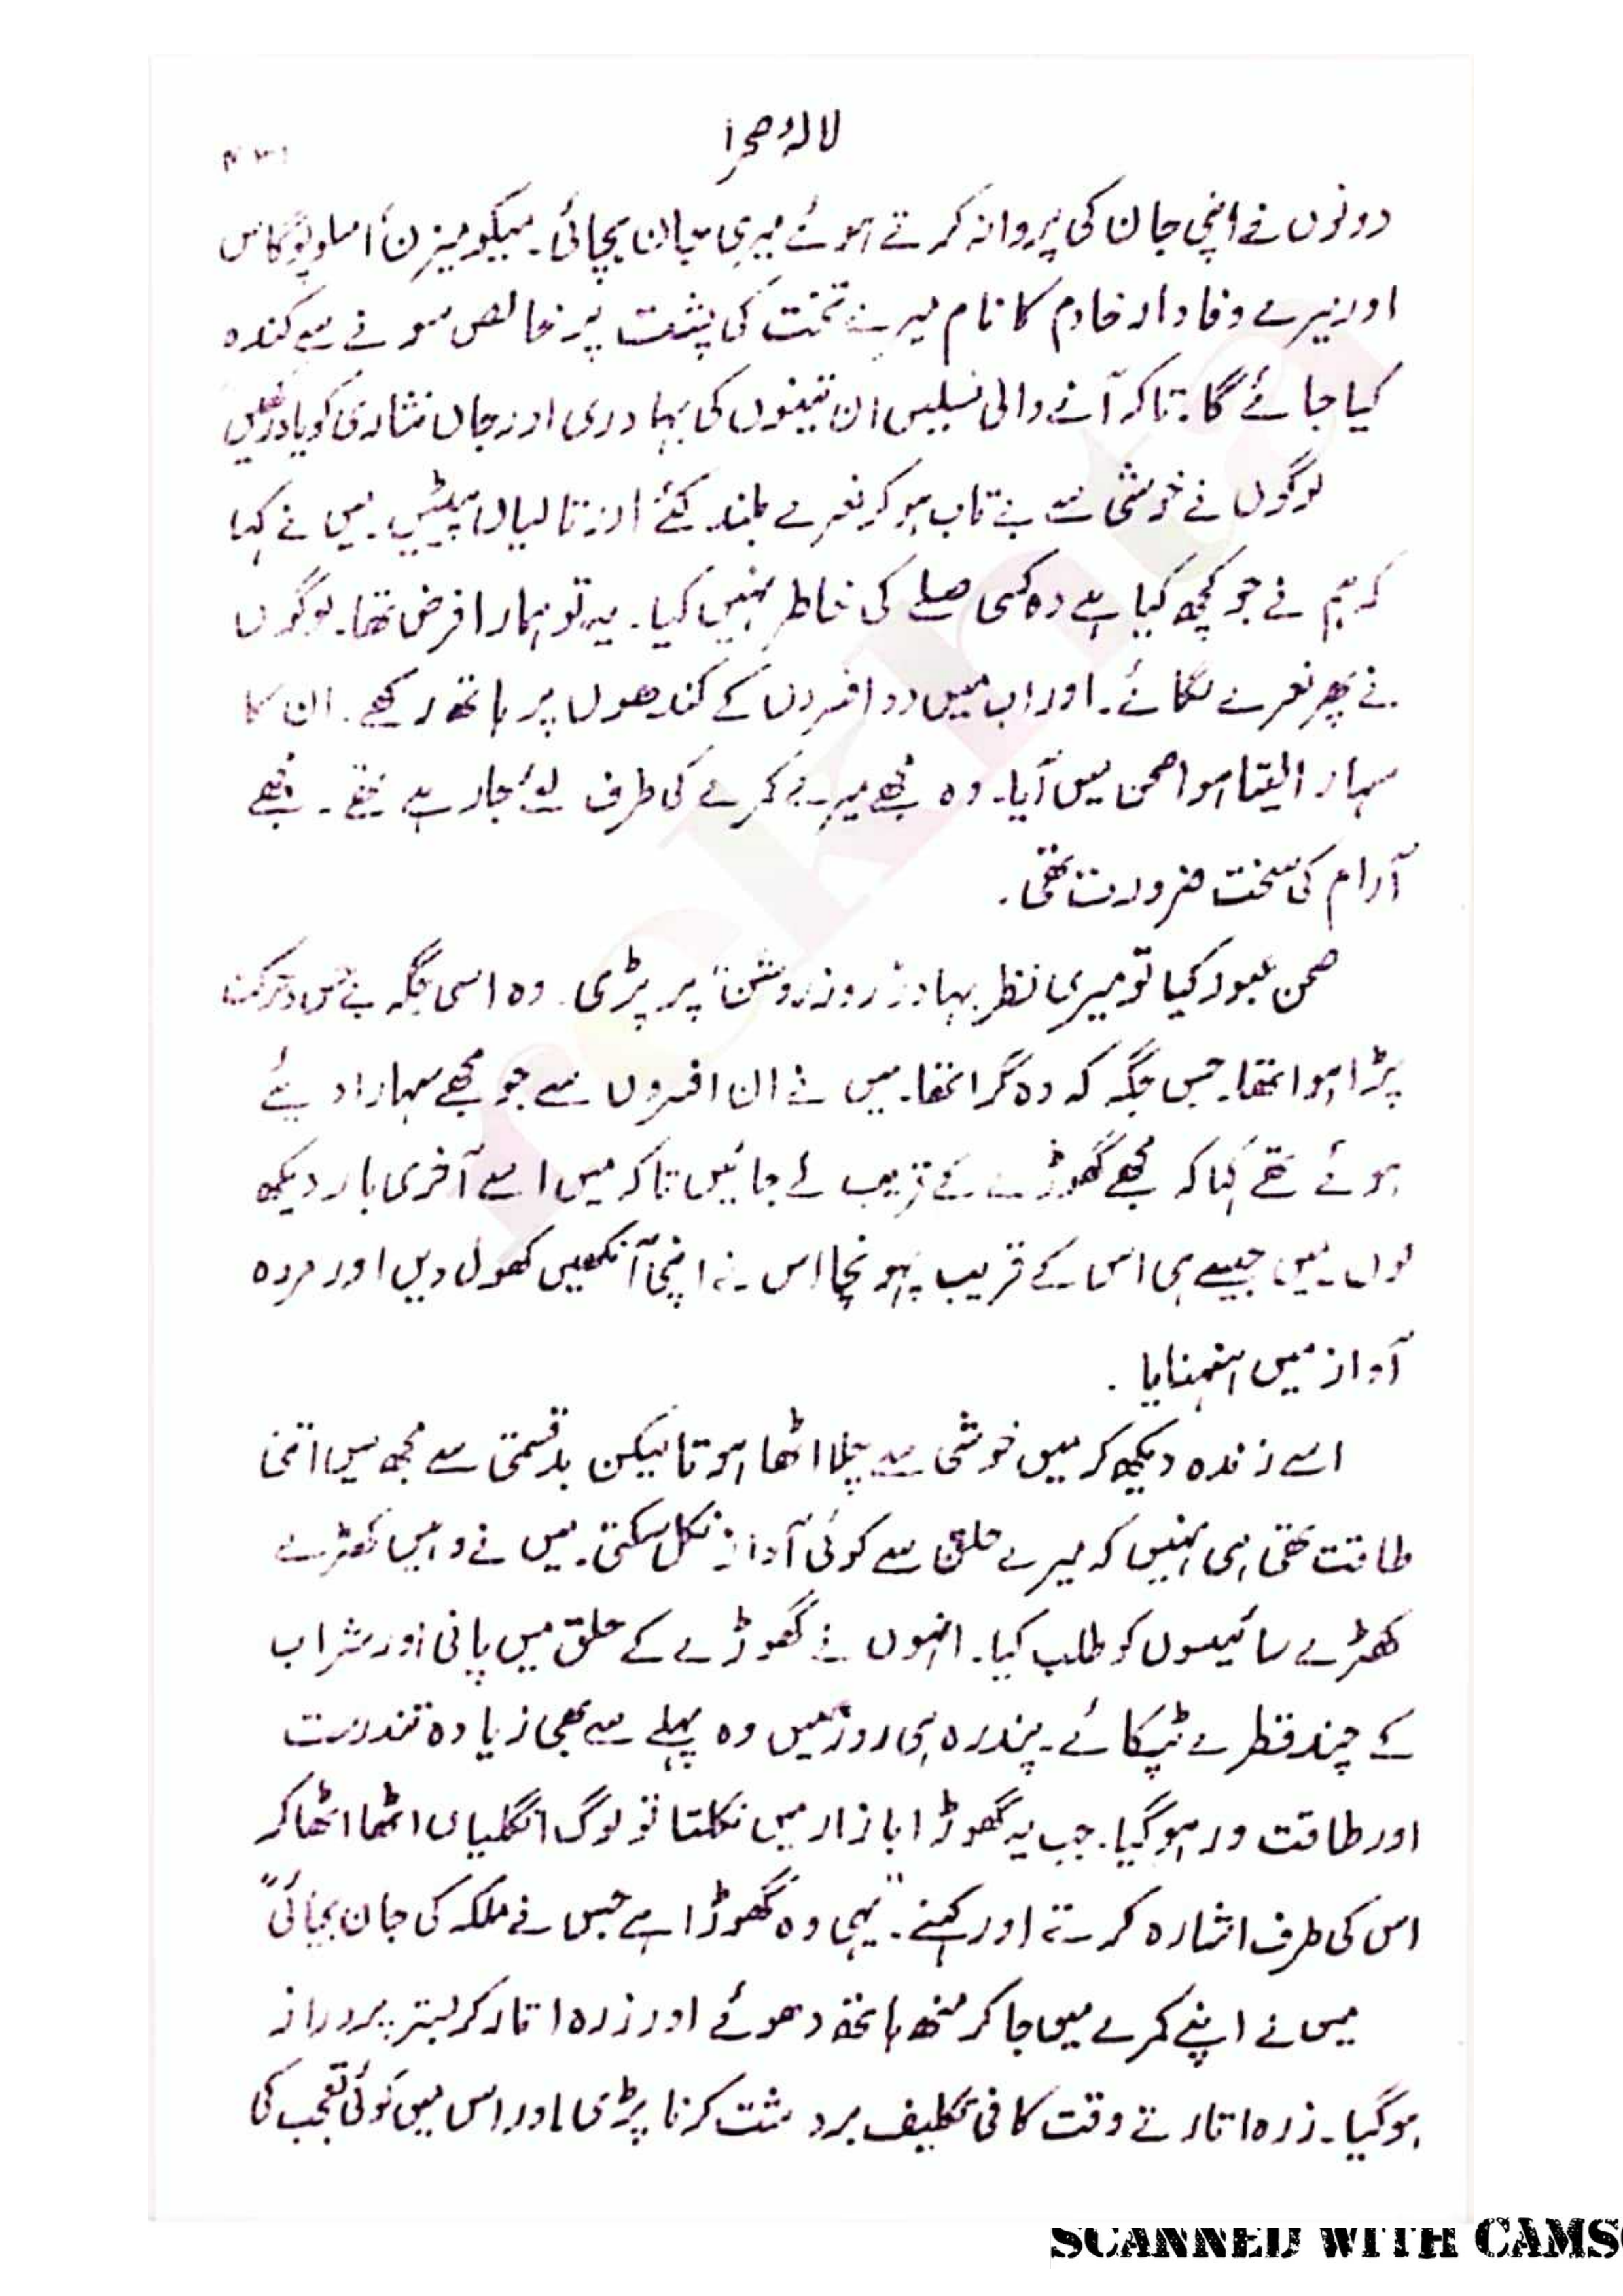 لالۂ صحرا
دونوں نے اپنی جان کی پروا نہ کرتے ہوئے میری جان بچائی۔ میکومیزن، امسلوپوگاس
اور میرے وفادار خادم کا نام میرے تخت کی پشت پر خالص سونے سے کندہ
کیا جائے گا۔ تاکہ آنے والی نسلیں ان تینوں کی بہادری اور جاں نثاری کو یاد رکھیں
لوگوں نے خوشی سے بے تاب ہو کر نعرے بلند کئے اور تالیاں پیٹیں۔ میں نے کہا
کہ ہم نے جو کچھ کیا ہے وہ کسی صلے کی خاطر نہیں کیا۔ یہ تو ہمارا فرض تھا۔ لوگوں
نے پھر نعرے لگائے۔ اور اب میں دو افسروں کے کندھوں پر ہاتھ رکھے۔ ان کا
سہارا لیتا ہوا صحن میں آیا۔ وہ مجھے میرے کمرے کی طرف لئے جا رہے تھے۔ مجھے
آرام کی سخت ضرورت تھی۔
صحن عبور کیا تو میری نظر بہادر "روز روشن" پر پڑی۔ وہ اسی جگہ بے حس و حرکت
پڑا ہوا تھا۔ جس جگہ کہ وہ گرا تھا۔ میں نے ان افسروں سے جو مجھے سہارا دیئے
ہوئے تھے کہا کہ مجھے گھوڑے کے قریب لے جائیں تاکہ میں اسے آخری بار دیکھ
لوں۔ میں جیسے ہی اس کے قریب پہونچا اس نے اپنی آنکھیں کھول دیں اور مردہ
آواز میں ہنہنایا۔
اسے زندہ دیکھ کر میں خوشی سے چلا اٹھا ہوتا لیکن بدقسمتی سے مجھ میں اتنی
طاقت تھی ہی نہیں کہ میرے حلق سے کوئی آواز نکل سکتی۔ میں نے وہیں کھڑے
کھڑے سائیسوں کو طلب کیا۔ انہوں نے گھوڑے کے حلق میں پانی اور شراب
کے چند قطرے ٹپکائے۔ پندرہ ہی روز میں وہ پہلے سے بھی زیادہ تندرست
اور طاقت ور ہو گیا۔ جب یہ گھوڑا بازار میں نکلتا تو لوگ انگلیاں اٹھا اٹھا کر
اس کی طرف اشارہ کرتے اور کہتے۔ "یہی وہ گھوڑا ہے جس نے ملکہ کی جان بچائی"
میں نے اپنے کمرے میں جا کر منھ ہاتھ دھوئے اور زرہ اتار کر بستر پر دراز
ہو گیا۔ زرہ اتارتے وقت کافی تکلیف بردشت کرنا پڑی اور اس میں کوئی تعجب کی
SCANNED WITH CAMS